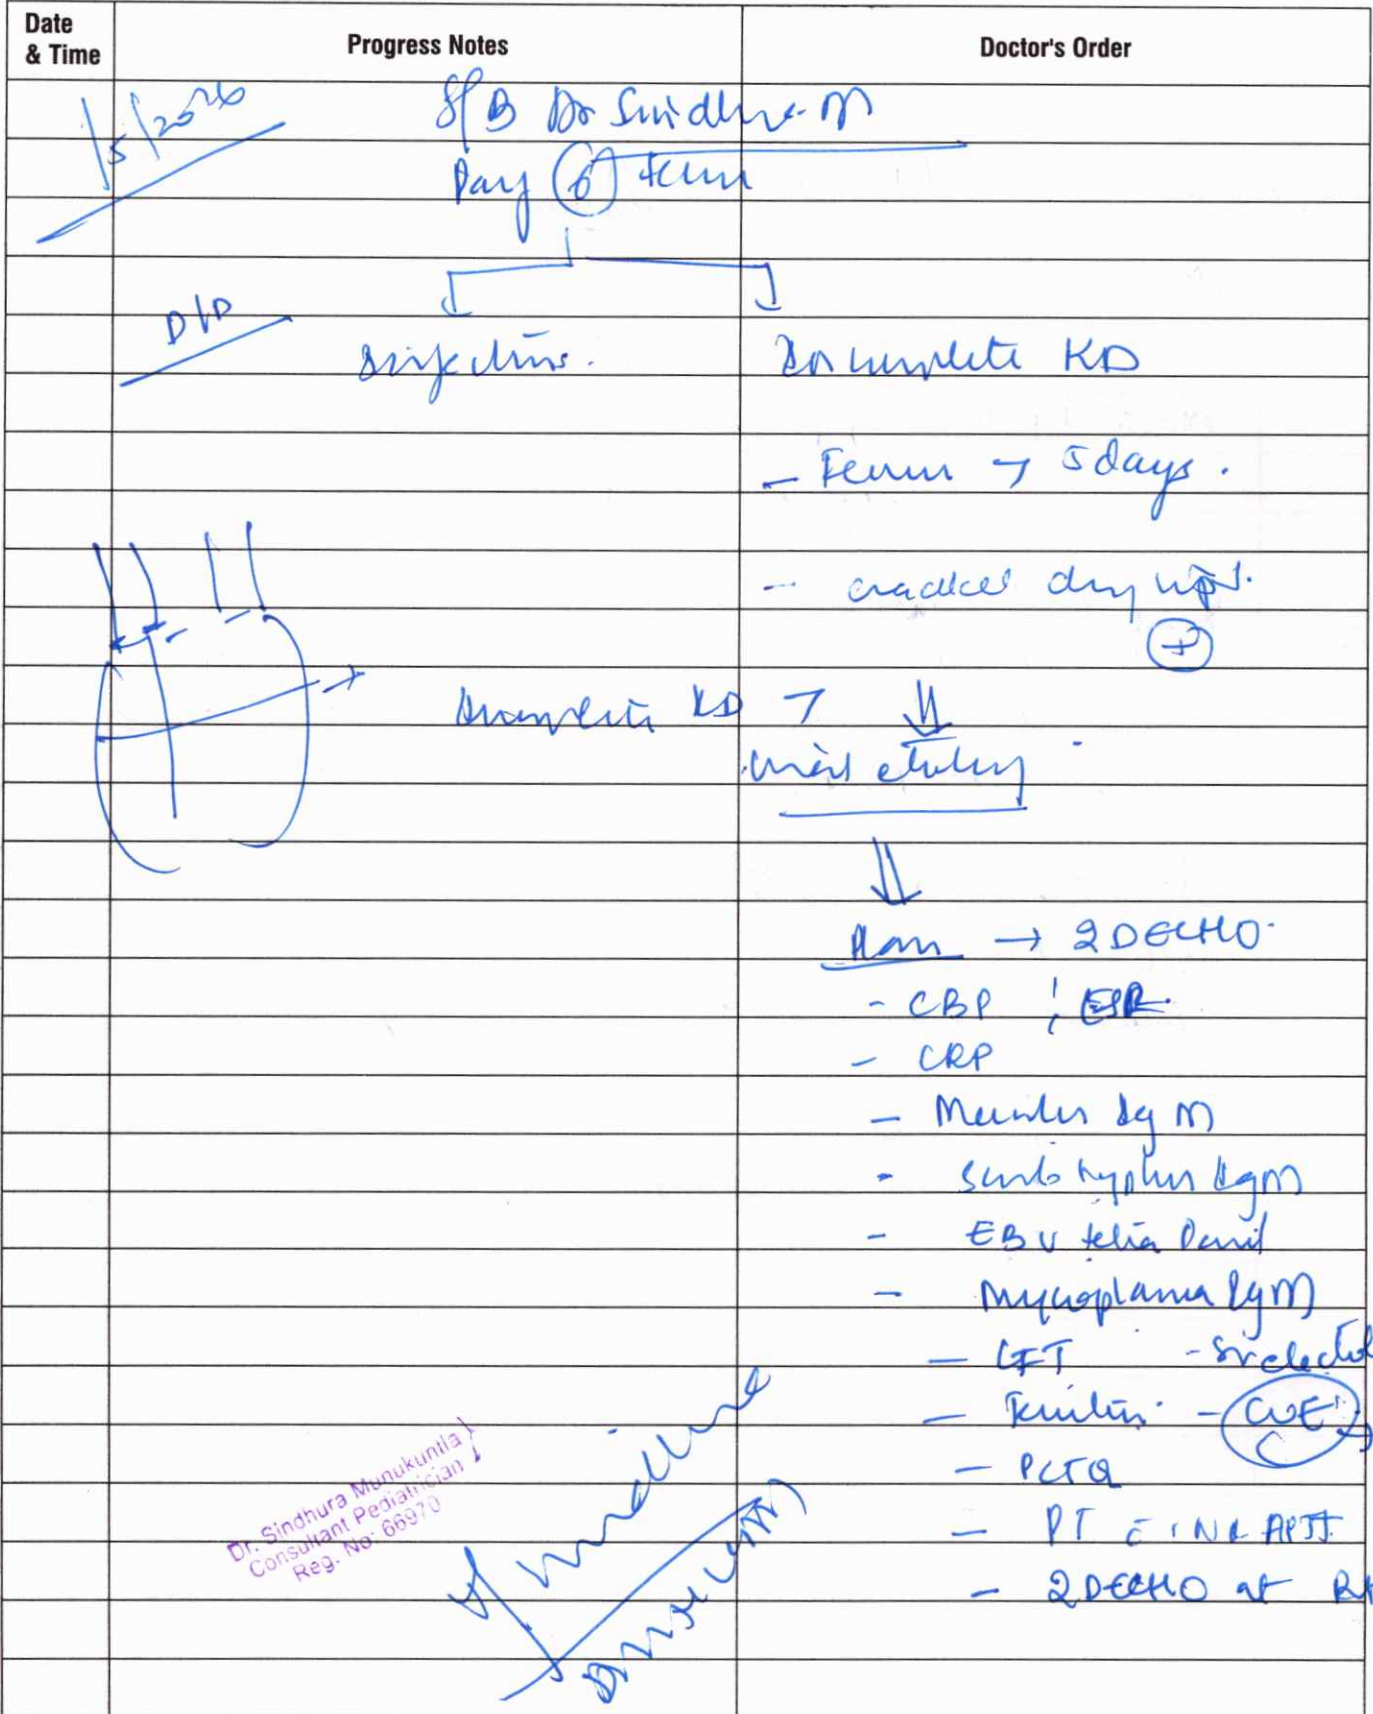 Date & Time
Progress Notes
Doctor's Order
1/5/2026
S/B Dr Sindhura M
Day 6 Fever
D/D
Infections.
Incomplete KD
- Fever → 5 days.
- cracked dry lips.
+
Incomplete KD →
Plan → 2DECHO
- CBP ; ESR
- CRP
- Measles IgM
- Scrub typhus IgM
- EBV
- Mycoplasma IgM
- LFT
- Ferritin - CUE
- PT c INR APTT
- 2DECHO at
Dr. Sindhura Munukuntla
Consultant Pediatrician
Reg. No: 66970